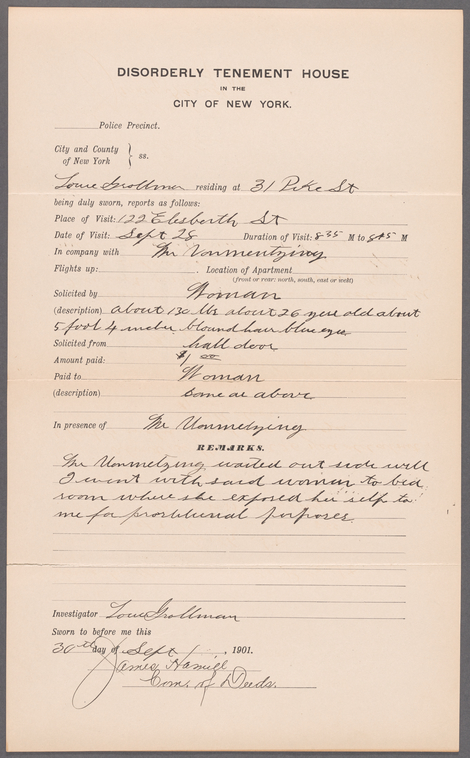 DISORDERLY TENEMENT HOUSE
IN THE
CITY OF NEW YORK.
Police Precinct.
City and County
of New York } ss.
Louie Grollman residing at 31 Pike St
being duly sworn, reports as follows:
Place of Visit: 122 Elesberth St
Date of Visit: Sept 28 Duration of Visit: 8 35 M to 8 45 M
In company with Mr Vonmentzing
Flights up: Location of Apartment
(front or rear: north, south, east or west)
Solicited by Woman
(description) about 130 lbs about 26 year old about
5 foot 4 blound hair blue eye
Solicited from hall door
Amount paid: $1 00
Paid to Woman
(description) same as above
In presence of Mr Vonmetzing
REMARKS.
Mr Vonmetzing waited out side will
I went with said woman to bed
room where she exposed her self to
me for prostitunal porposes.
Investigator Louie Grollman
Sworn to before me this
30th day of Sept 1901.
James Hamill
Com. of Deeds.